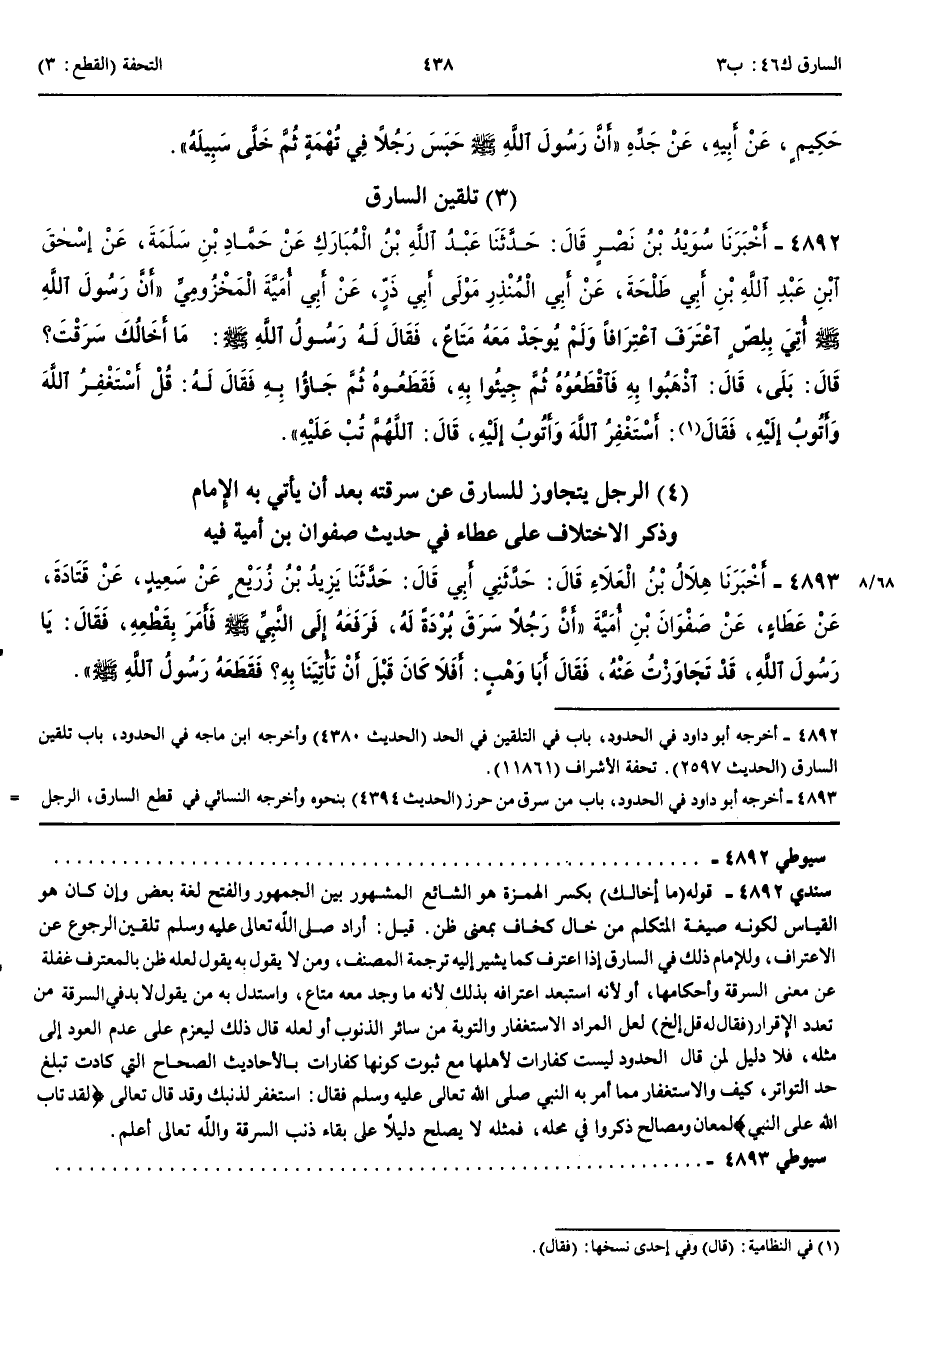 السارق ك٤٦: ب٣ ٤٣٨ التحفة (القطع: ٣)
حَكِيمٍ، عَنْ أَبِيهِ، عَنْ جَدِّهِ «أَنَّ رَسُولَ اللَّهِ ﷺ حَبَسَ رَجُلاً فِي تُهْمَةٍ ثُمَّ خَلَّى سَبِيلَهُ».
(٣) تلقين السارق
٤٨٩٢ - أَخْبَرَنَا سُوَيْدُ بْنُ نَصْرٍ قَالَ: حَدَّثَنَا عَبْدُ اللَّهِ بْنُ الْمُبَارَكِ عَنْ حَمَّادِ بْنِ سَلَمَةَ، عَنْ إِسْحٰقَ
ابْنِ عَبْدِ اللَّهِ بْنِ أَبِي طَلْحَةَ، عَنْ أَبِي الْمُنْذِرِ مَوْلَى أَبِي ذَرٍّ، عَنْ أَبِي أُمَيَّةَ الْمَخْزُومِيِّ «أَنَّ رَسُولَ اللَّهِ
ﷺ أُتِيَ بِلِصٍّ اعْتَرَفَ اعْتِرَافاً وَلَمْ يُوجَدْ مَعَهُ مَتَاعٌ، فَقَالَ لَهُ رَسُولُ اللَّهِ ﷺ: مَا أَخَالُكَ سَرَقْتَ؟
قَالَ: بَلَى، قَالَ: اذْهَبُوا بِهِ فَاقْطَعُوهُ ثُمَّ جِيئُوا بِهِ، فَقَطَعُوهُ ثُمَّ جَاؤُا بِهِ فَقَالَ لَهُ: قُلْ أَسْتَغْفِرُ اللَّهَ
وَأَتُوبُ إِلَيْهِ، فَقَالَ(١): أَسْتَغْفِرُ اللَّهَ وَأَتُوبُ إِلَيْهِ، قَالَ: اللَّهُمَّ تُبْ عَلَيْهِ».
(٤) الرجل يتجاوز للسارق عن سرقته بعد أن يأتي به الإمام
وذكر الاختلاف على عطاء في حديث صفوان بن أمية فيه
٨/٦٨ ٤٨٩٣ - أَخْبَرَنَا هِلَالُ بْنُ الْعَلَاءِ قَالَ: حَدَّثَنِي أَبِي قَالَ: حَدَّثَنَا يَزِيدُ بْنُ زُرَيْعٍ عَنْ سَعِيدٍ، عَنْ قَتَادَةَ،
عَنْ عَطَاءٍ، عَنْ صَفْوَانَ بْنِ أُمَيَّةَ «أَنَّ رَجُلاً سَرَقَ بُرْدَةً لَهُ، فَرَفَعَهُ إِلَى النَّبِيِّ ﷺ فَأَمَرَ بِقَطْعِهِ، فَقَالَ: يَا
رَسُولَ اللَّهِ، قَدْ تَجَاوَزْتُ عَنْهُ، فَقَالَ أَبَا وَهْبٍ: أَفَلَا كَانَ قَبْلَ أَنْ تَأْتِيَنَا بِهِ؟ فَقَطَعَهُ رَسُولُ اللَّهِ ﷺ».
٤٨٩٢ - أخرجه أبو داود في الحدود، باب في التلقين في الحد (الحديث ٤٣٨٠) وأخرجه ابن ماجه في الحدود، باب تلقين
السارق (الحديث ٢٥٩٧). تحفة الأشراف (١١٨٦١).
٤٨٩٣ - أخرجه أبو داود في الحدود، باب من سرق من حرز (الحديث ٤٣٩٤) بنحوه وأخرجه النسائي في قطع السارق، الرجل =
سيوطي ٤٨٩٢ - ................................................
سندي ٤٨٩٢ - قوله (ما أخالك) بكسر الهمزة هو الشائع المشهور بين الجمهور والفتح لغة بعض وإن كان هو
القياس لكونه صيغة المتكلم من خال كخاف بمعنى ظن. قيل: أراد صلى الله تعالى عليه وسلم تلقين الرجوع عن
الاعتراف، وللإمام ذلك في السارق إذا اعترف كما يشير إليه ترجمة المصنف، ومن لا يقول به يقول لعله ظن بالمعترف غفلة
عن معنى السرقة وأحكامها، أو لأنه استبعد اعترافه بذلك لأنه ما وجد معه متاع، واستدل به من يقول لا بد في السرقة من
تعدد الإقرار (فقال له قل إلخ) لعل المراد الاستغفار والتوبة من سائر الذنوب أو لعله قال ذلك ليعزم على عدم العود إلى
مثله، فلا دليل لمن قال الحدود ليست كفارات لأهلها مع ثبوت كونها كفارات بالأحاديث الصحاح التي كادت تبلغ
حد التواتر، كيف والاستغفار مما أمر به النبي صلى الله تعالى عليه وسلم فقال: استغفر لذنبك وقد قال تعالى ﴿لقد تاب
الله على النبي﴾ لمعان ومصالح ذكروا في محله، فمثله لا يصلح دليلاً على بقاء ذنب السرقة والله تعالى أعلم.
سيوطي ٤٨٩٣ - ................................................
(١) في النظامية: (قال) وفي إحدى نسخها: (فقال).